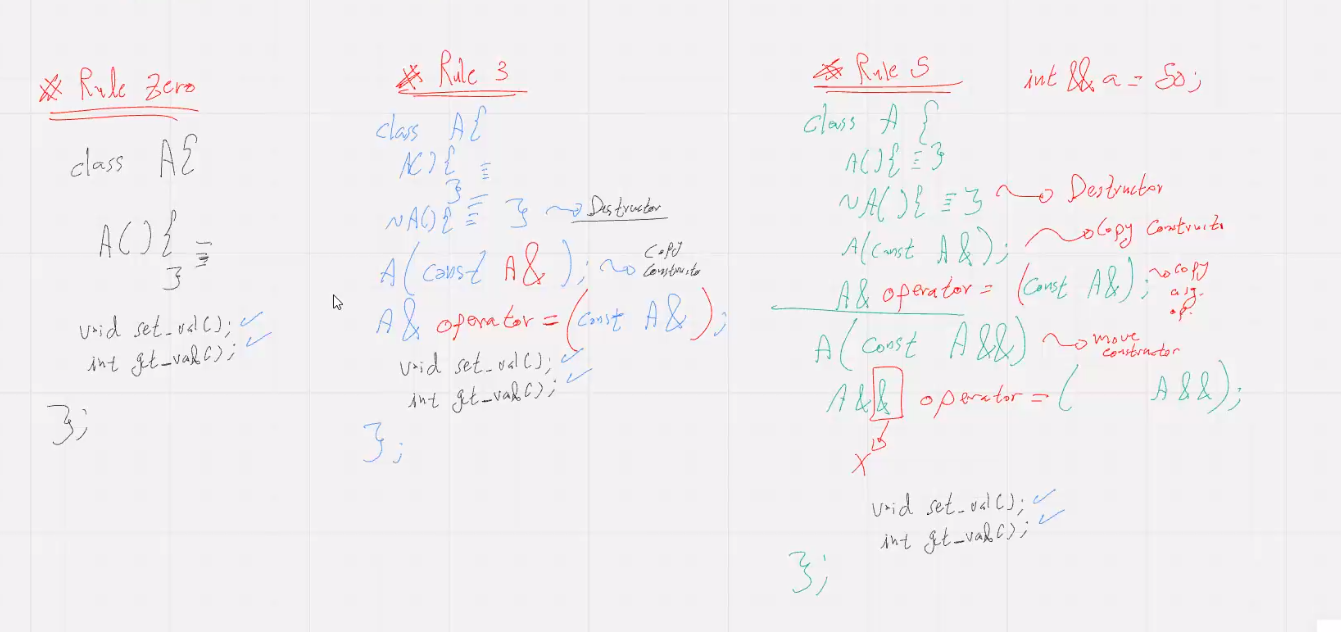 * Rule Zero
class A{
A(){ 
}
void set_val();
int get_val();
};
* Rule 3
class A{
A(){
}
~A(){ } Destructor
A(const A&); Copy Constructo
A& operator=(const A&);
void set_val();
int get_val();
};
* Rule 5
int && a = 50;
class A {
A(){ }
~A(){ } Destructor
A(const A&); Copy Constructo
A& operator= (const A&); copy
asg.
op.
A(const A&&) move
constructor
A&& operator=( A&&);
X
void set_val();
int get_val();
};